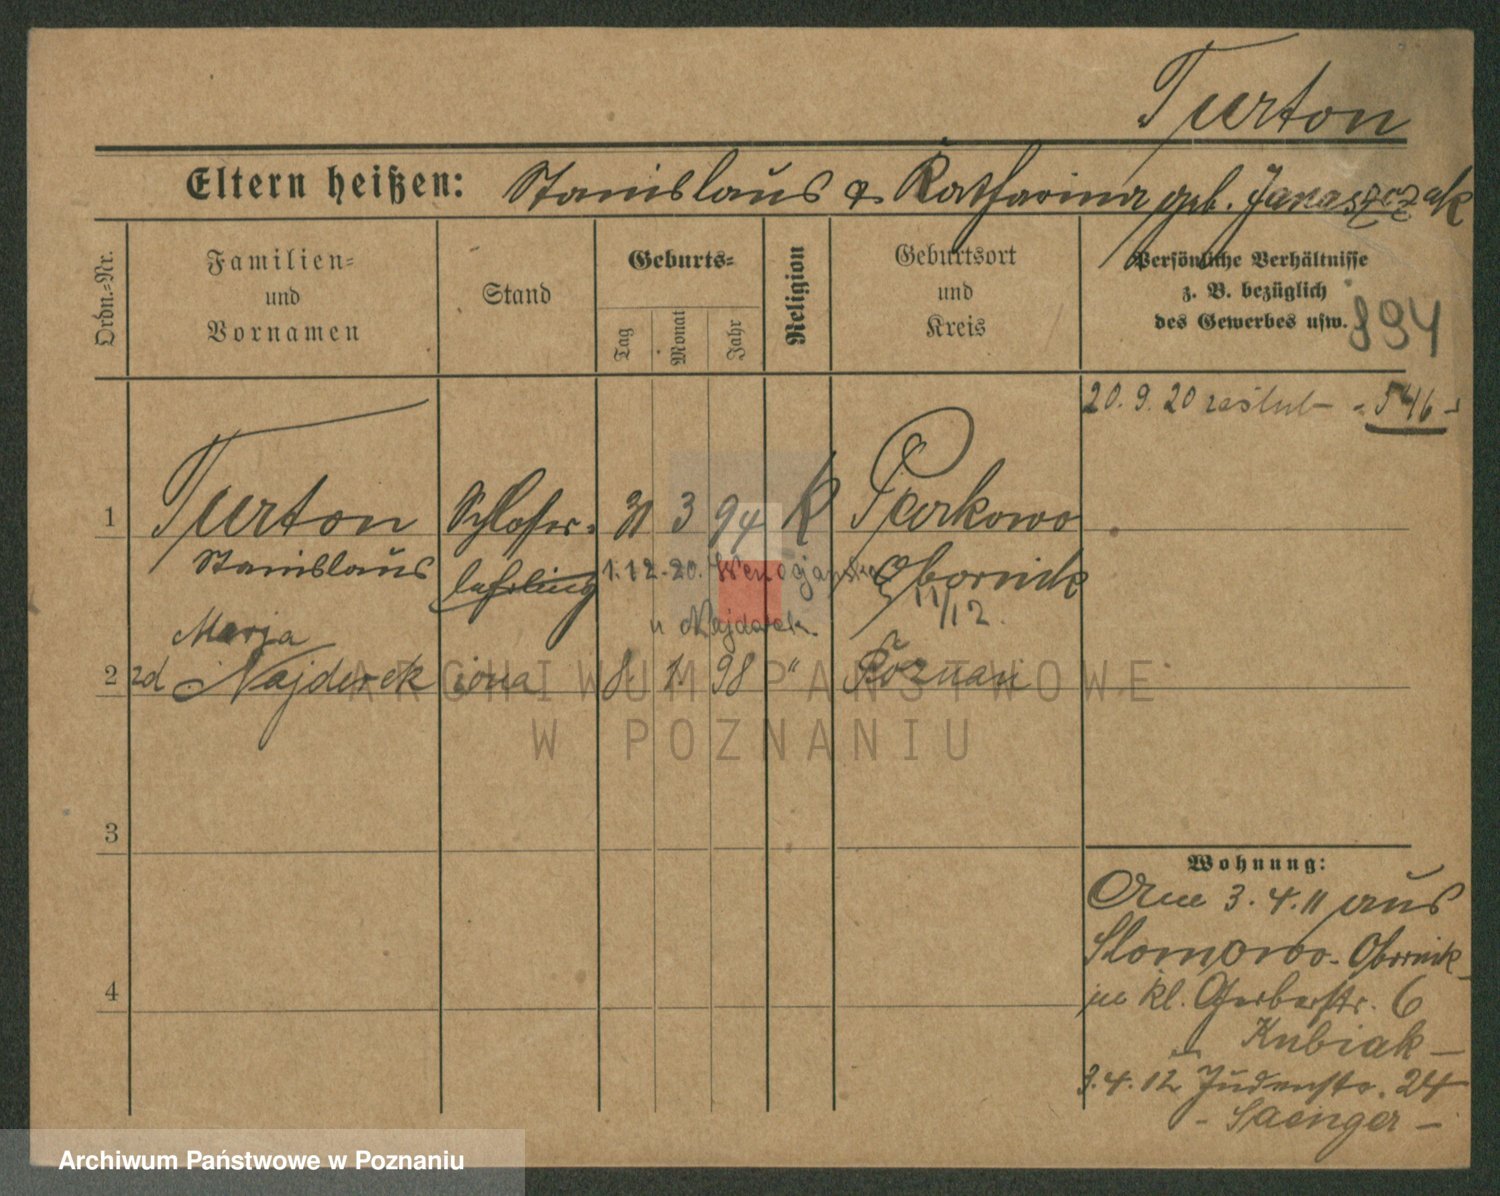 Turton
Eltern heißen: Stanislaus & Katharina geb. Janaszczak
Ordn.=Nr.
Familien=
und
Vornamen
Stand
Geburts=
Tag
Monat
Jahr
Religion
Geburtsort
und
Kreis
Persönliche Verhältnisse
z. B. bezüglich
des Gewerbes usw.
894
20. 9. 20 zaślub - 546 -
1 Turton Schlosser- 31 3 94 K Parkowo
Stanislaus lehrling 1.12.20. Obornick
11/12.
Marja u Najderek
2 zd Najderek żona 8. 1. 98 " Poznań
3
4
Wohnung:
Am 3.4.11 aus
Slomowo-Obornick-
in kl. Gerberstr. 6
Kubiak -
3.4.12 Judenstr. 24
- Saenger -
ARCHIWUM PAŃSTWOWE
W POZNANIU
Archiwum Państwowe w Poznaniu